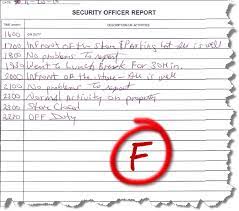 DATE
SECURITY OFFICER REPORT
DESCRIPTION OF ACTIVITIES
1600 ON DUTY
1700 In front of the store & Parking Lot All is well
1800 No problems To report
Went to Lunch Break For 30 min.
2000 In front of the store - All is well
2100 No problems To report
2200 Normal Activity on property
2300 Store Closed
Off Duty
F